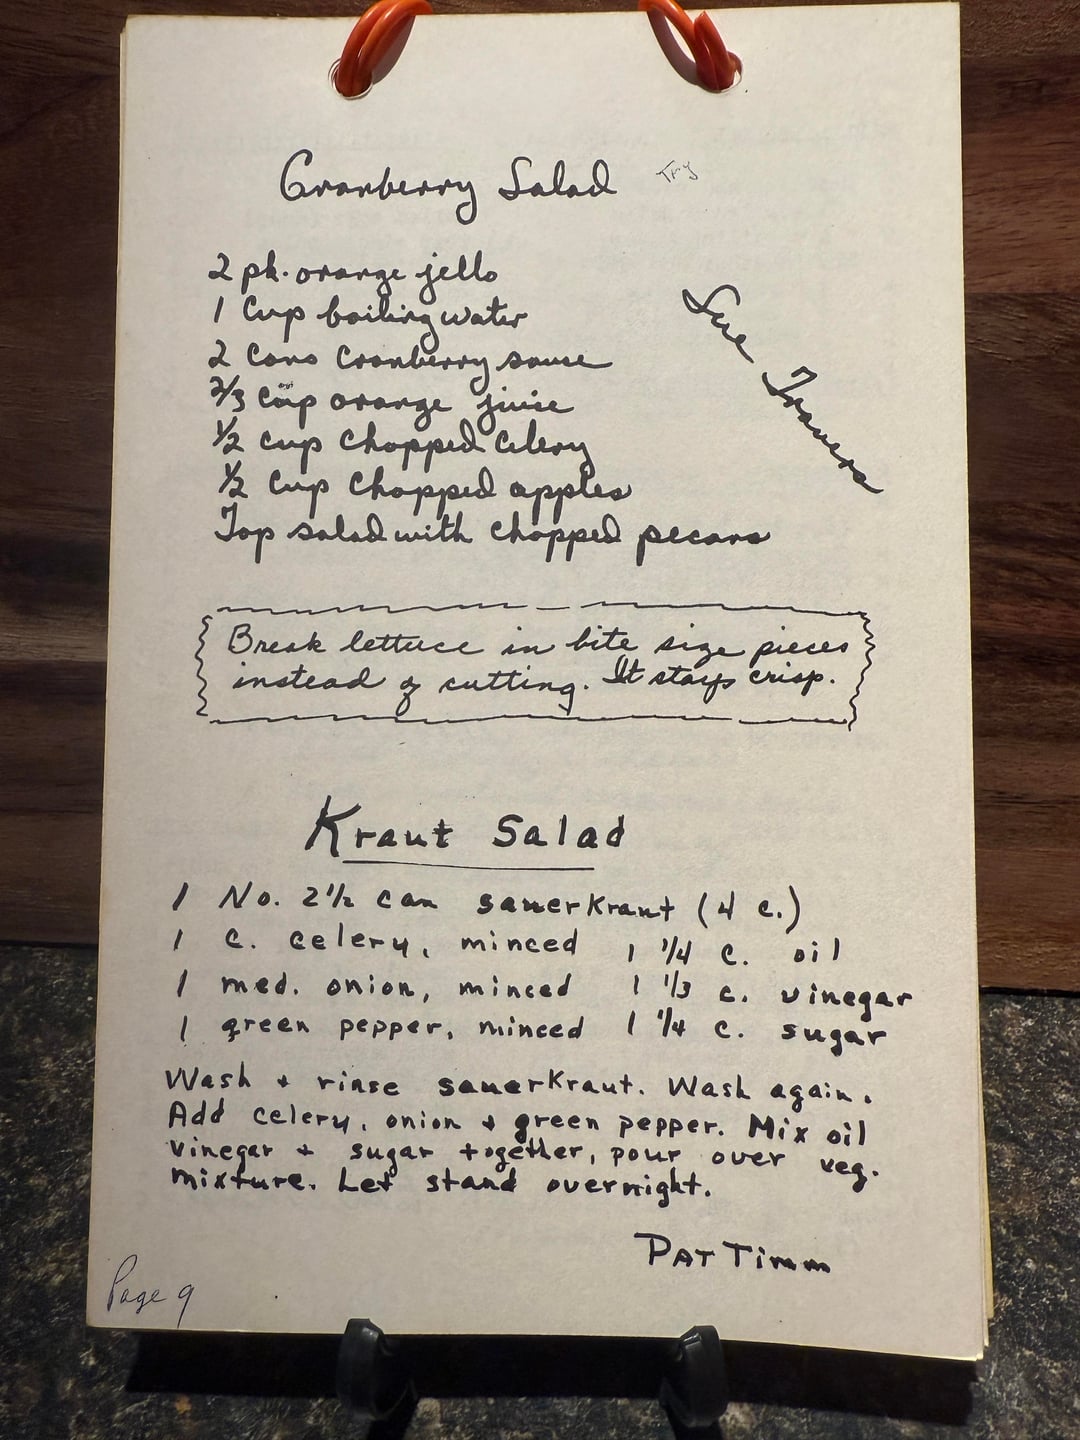 Cranberry Salad Try
2 pk. orange jello
1 Cup boiling water
2 Cans Cranberry sauce
2/3 Cup orange juice
1/2 cup chopped celery
1/2 Cup Chopped apples
Top salad with chopped pecans
Sue Travers
Break lettuce in bite size pieces
instead of cutting. It stays crisp.
Kraut Salad
1 No. 2 1/2 can sauerkraut (4 c.)
1 c. celery, minced 1 1/4 c. oil
1 med. onion, minced 1 1/3 c. vinegar
1 green pepper, minced 1 1/4 c. sugar
Wash + rinse sauerkraut. Wash again.
Add celery, onion + green pepper. Mix oil
vinegar + sugar together, pour over veg.
mixture. Let stand overnight.
PAT Timm
Page 9